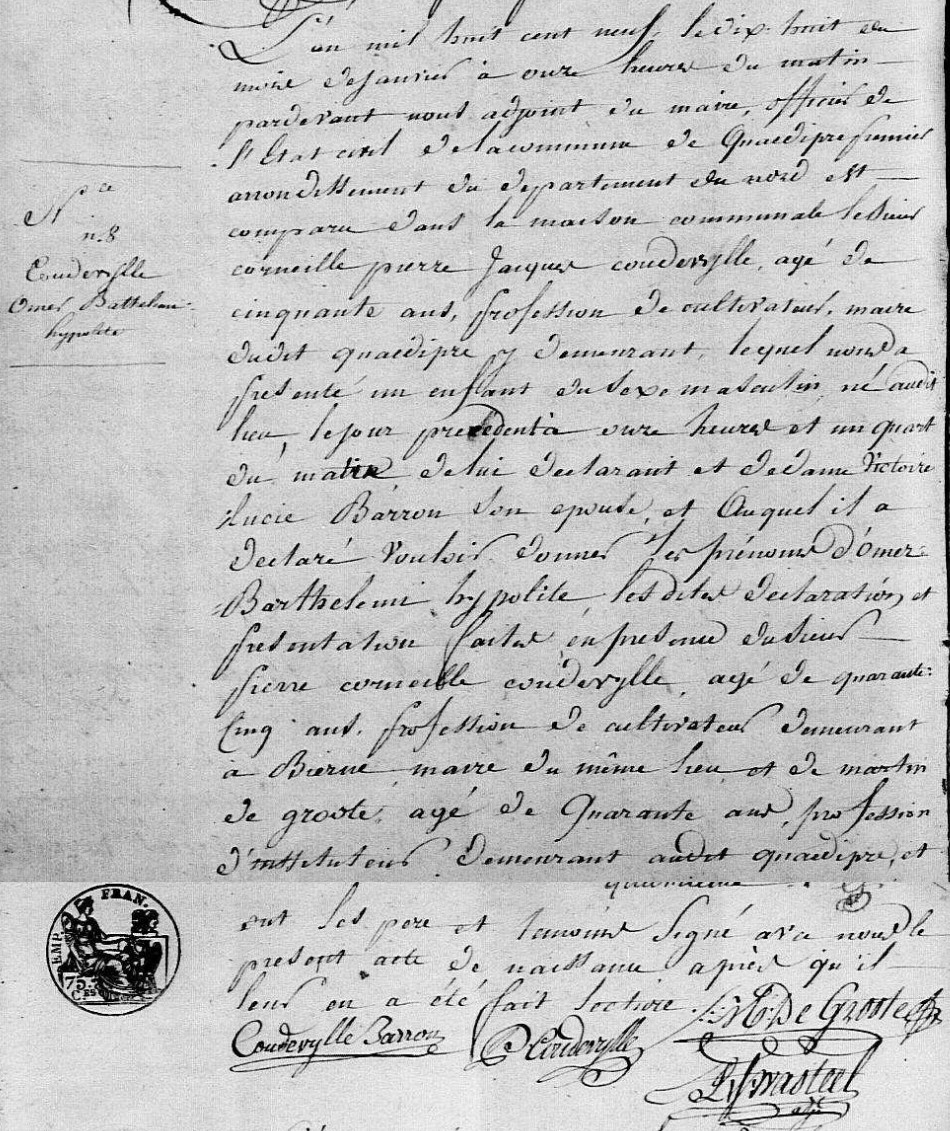 L'an mil huit cent neuf, le dix-huit du
mois de janvier à onze heures du matin
pardevant nous adjoint du maire, officier de
l'Etat civil de la commune de Quaedipre premier
arrondissement du departement du nord est
comparu dans la maison communale le sieur
corneille pierre Jacques coudevylle, agé de
cinquante ans, profession de cultivateur, maire
dudit quaedipre y demeurant, lequel nous a
presenté un enfant du sexe masculin né audit
lieu, le jour precedent à onze heures et un quart
du matin de lui declarant et de dame Victoire
Lucie Barron son epouse, et Auquel il a
declaré Vouloir donner les prénoms d'Omer
Barthelemi hypolite, lesdites declaration et
presentation faites en presence du sieur
pierre corneille coudevylle, agé de quarante
Cinq ans, profession de cultivateur demeurant
a Bierne maire du même lieu et de martin
de groote, agé de Quarante ans, profession
d'instituteur demeurant audit quaedipre, et
ont les pere et temoins signé avec nous le
present acte de naissance après qu'il
leur en a été fait lecture
Coudevylle Barron
P Coudevylle
M. De Groote
Wasteel
adjt
Nce
n.8
Coudevylle
Omer Barthelemi
hypolite
EMP. FRAN.
75.
Ces